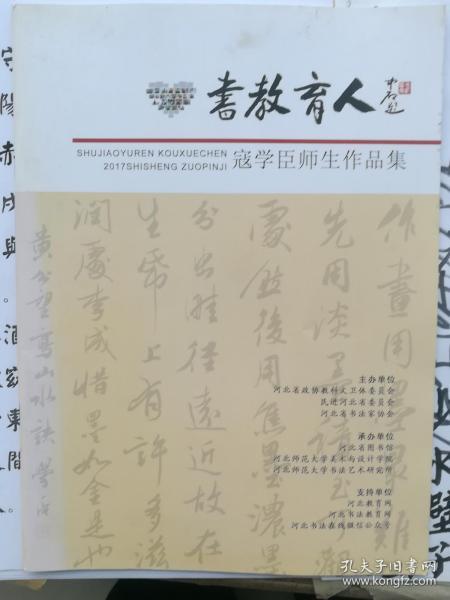 書教育人
中石题
SHUJIAOYUREN KOUXUECHEN
2017SHISHENG ZUOPINJI
寇学臣师生作品集
作畫用墨最難
先用淡墨積至可
處然後用焦墨濃墨
分出畦徑遠近故在
生紙上有許多滋
潤處李成惜墨如金是也
黄公望寫山水訣 學臣
主办单位
河北省政协教科文卫体委员会
民进河北省委员会
河北省书法家协会
承办单位
河北省图书馆
河北师范大学美术与设计学院
河北师范大学书法艺术研究所
支持单位
河北教育网
河北书法教育网
河北书法在线微信公众号
陽
赤
戌
與
酒
東
間
水
壁
子
孔夫子旧书网
www.kongfz.com